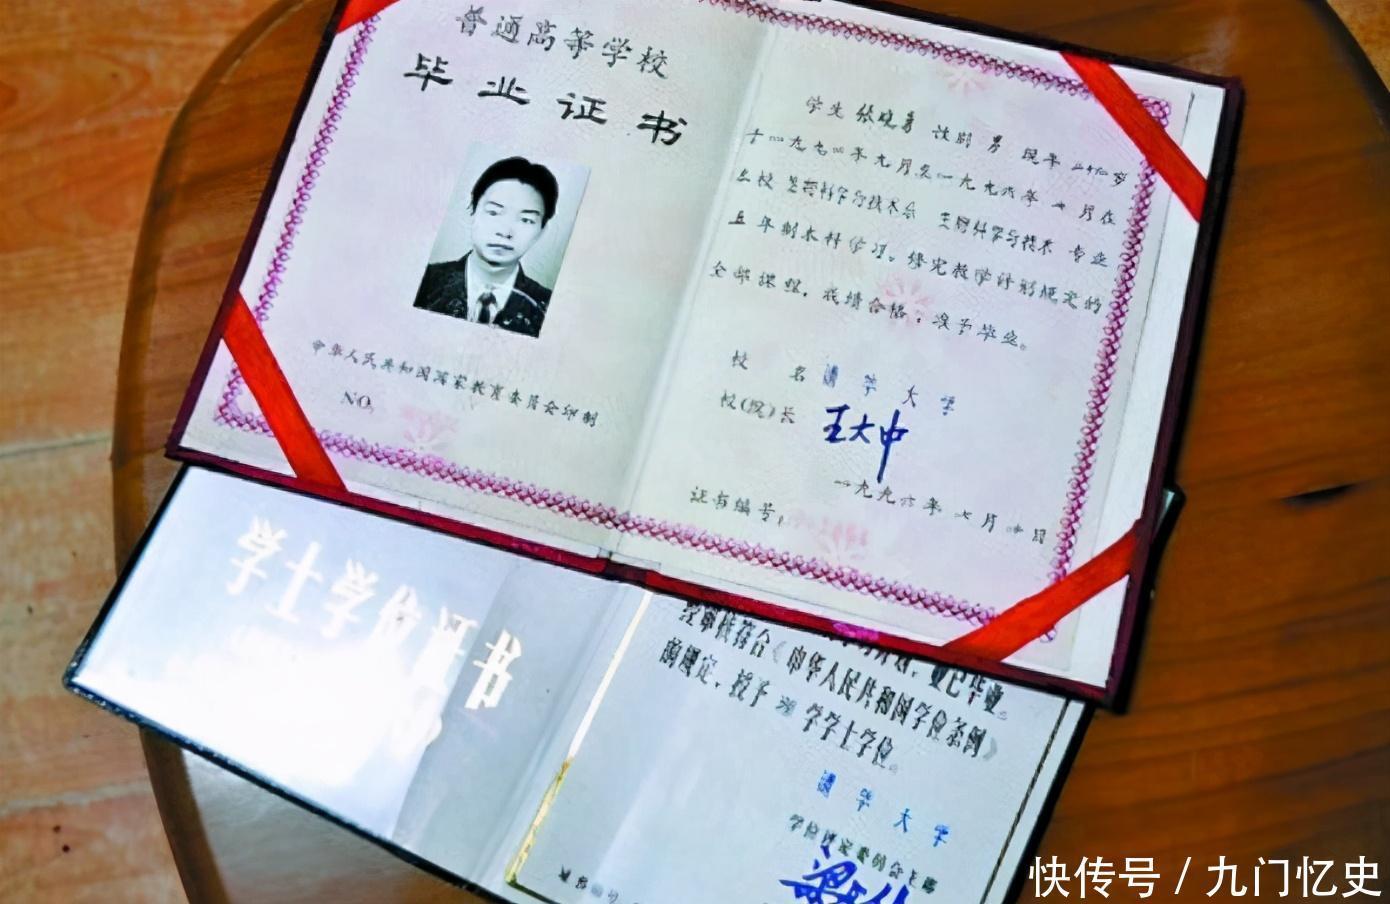 普通高等学校
毕业证书
中华人民共和国国家教育委员会印制
NO.
学生 张晓勇 性别 男 现年 二十 岁
于一九九 年九月至一九九六年七月在
本校 生物科学与技术系 生物科学与技术 专业
五年制本科学习。修完教学计划规定的
全部课程,成绩合格,准予毕业。
校 名 清华大学
校(院)长 王大中
一九九六年七月 日
证书编号:
学士学位证书
业已毕业。
经审核符合《中华人民共和国学位条例》
的规定,授予 理 学学士学位。
清华大学
学位评定委员会主席
快传号 / 九门忆史